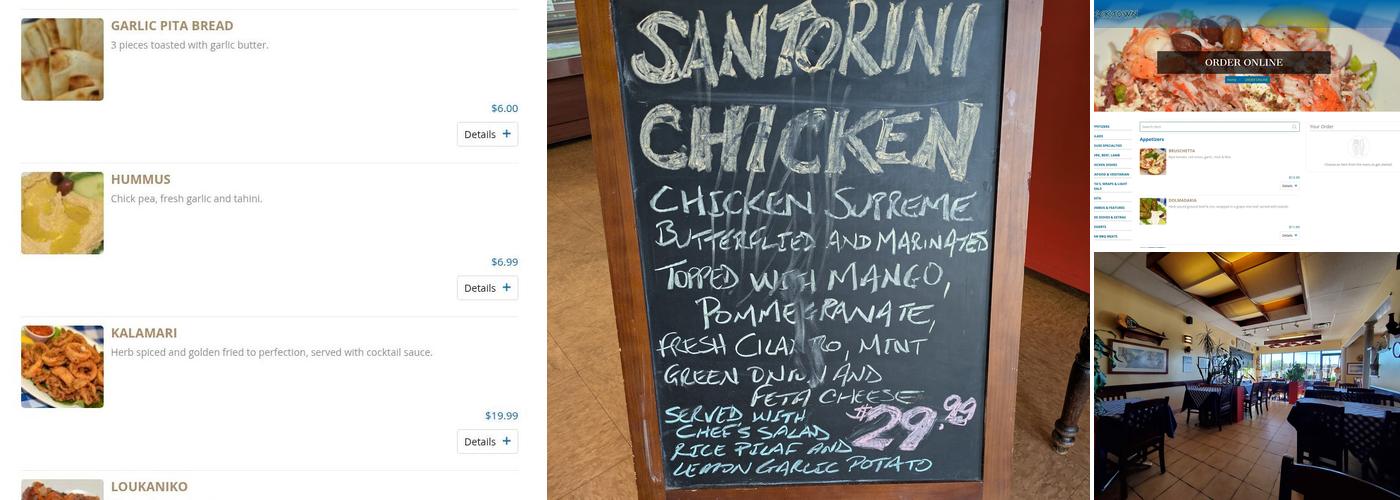 GARLIC PITA BREAD
3 pieces toasted with garlic butter.
$6.00
Details +
HUMMUS
Chick pea, fresh garlic and tahini.
$6.99
Details +
KALAMARI
Herb spiced and golden fried to perfection, served with cocktail sauce.
$19.99
Details +
LOUKANIKO
SANTORINI
CHICKEN
CHICKEN SUPREME
BUTTERFLIED AND MARINATED
TOPPED WITH MANGO,
POMMEGRANATE,
FRESH CILANTRO, MINT
GREEN ONION AND
FETA CHEESE
SERVED WITH
CHEF'S SALAD
RICE PILAF AND
LEMON GARLIC POTATO
$29.99
ORDER ONLINE
Home
ORDER ONLINE
Your Order
Appetizers
BRUSCHETTA
Details +
DOLMADARIA
Details +